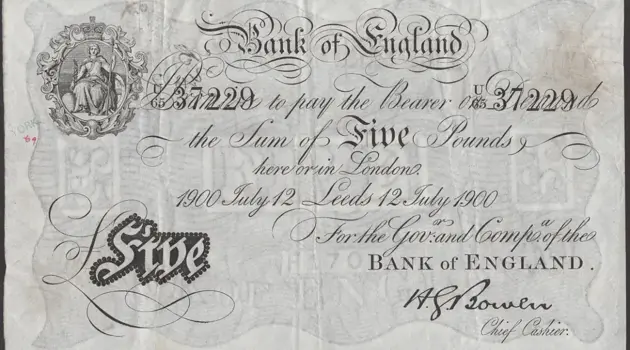 Bank of England
U/65 37229 to pay the Bearer on Demand U/65 37229
the Sum of Five Pounds
here or in London.
1900 July 12 Leeds 12 July 1900
For the Govr. and Compa. of the
BANK of ENGLAND.
£ Five
H G Bowen
Chief Cashier.